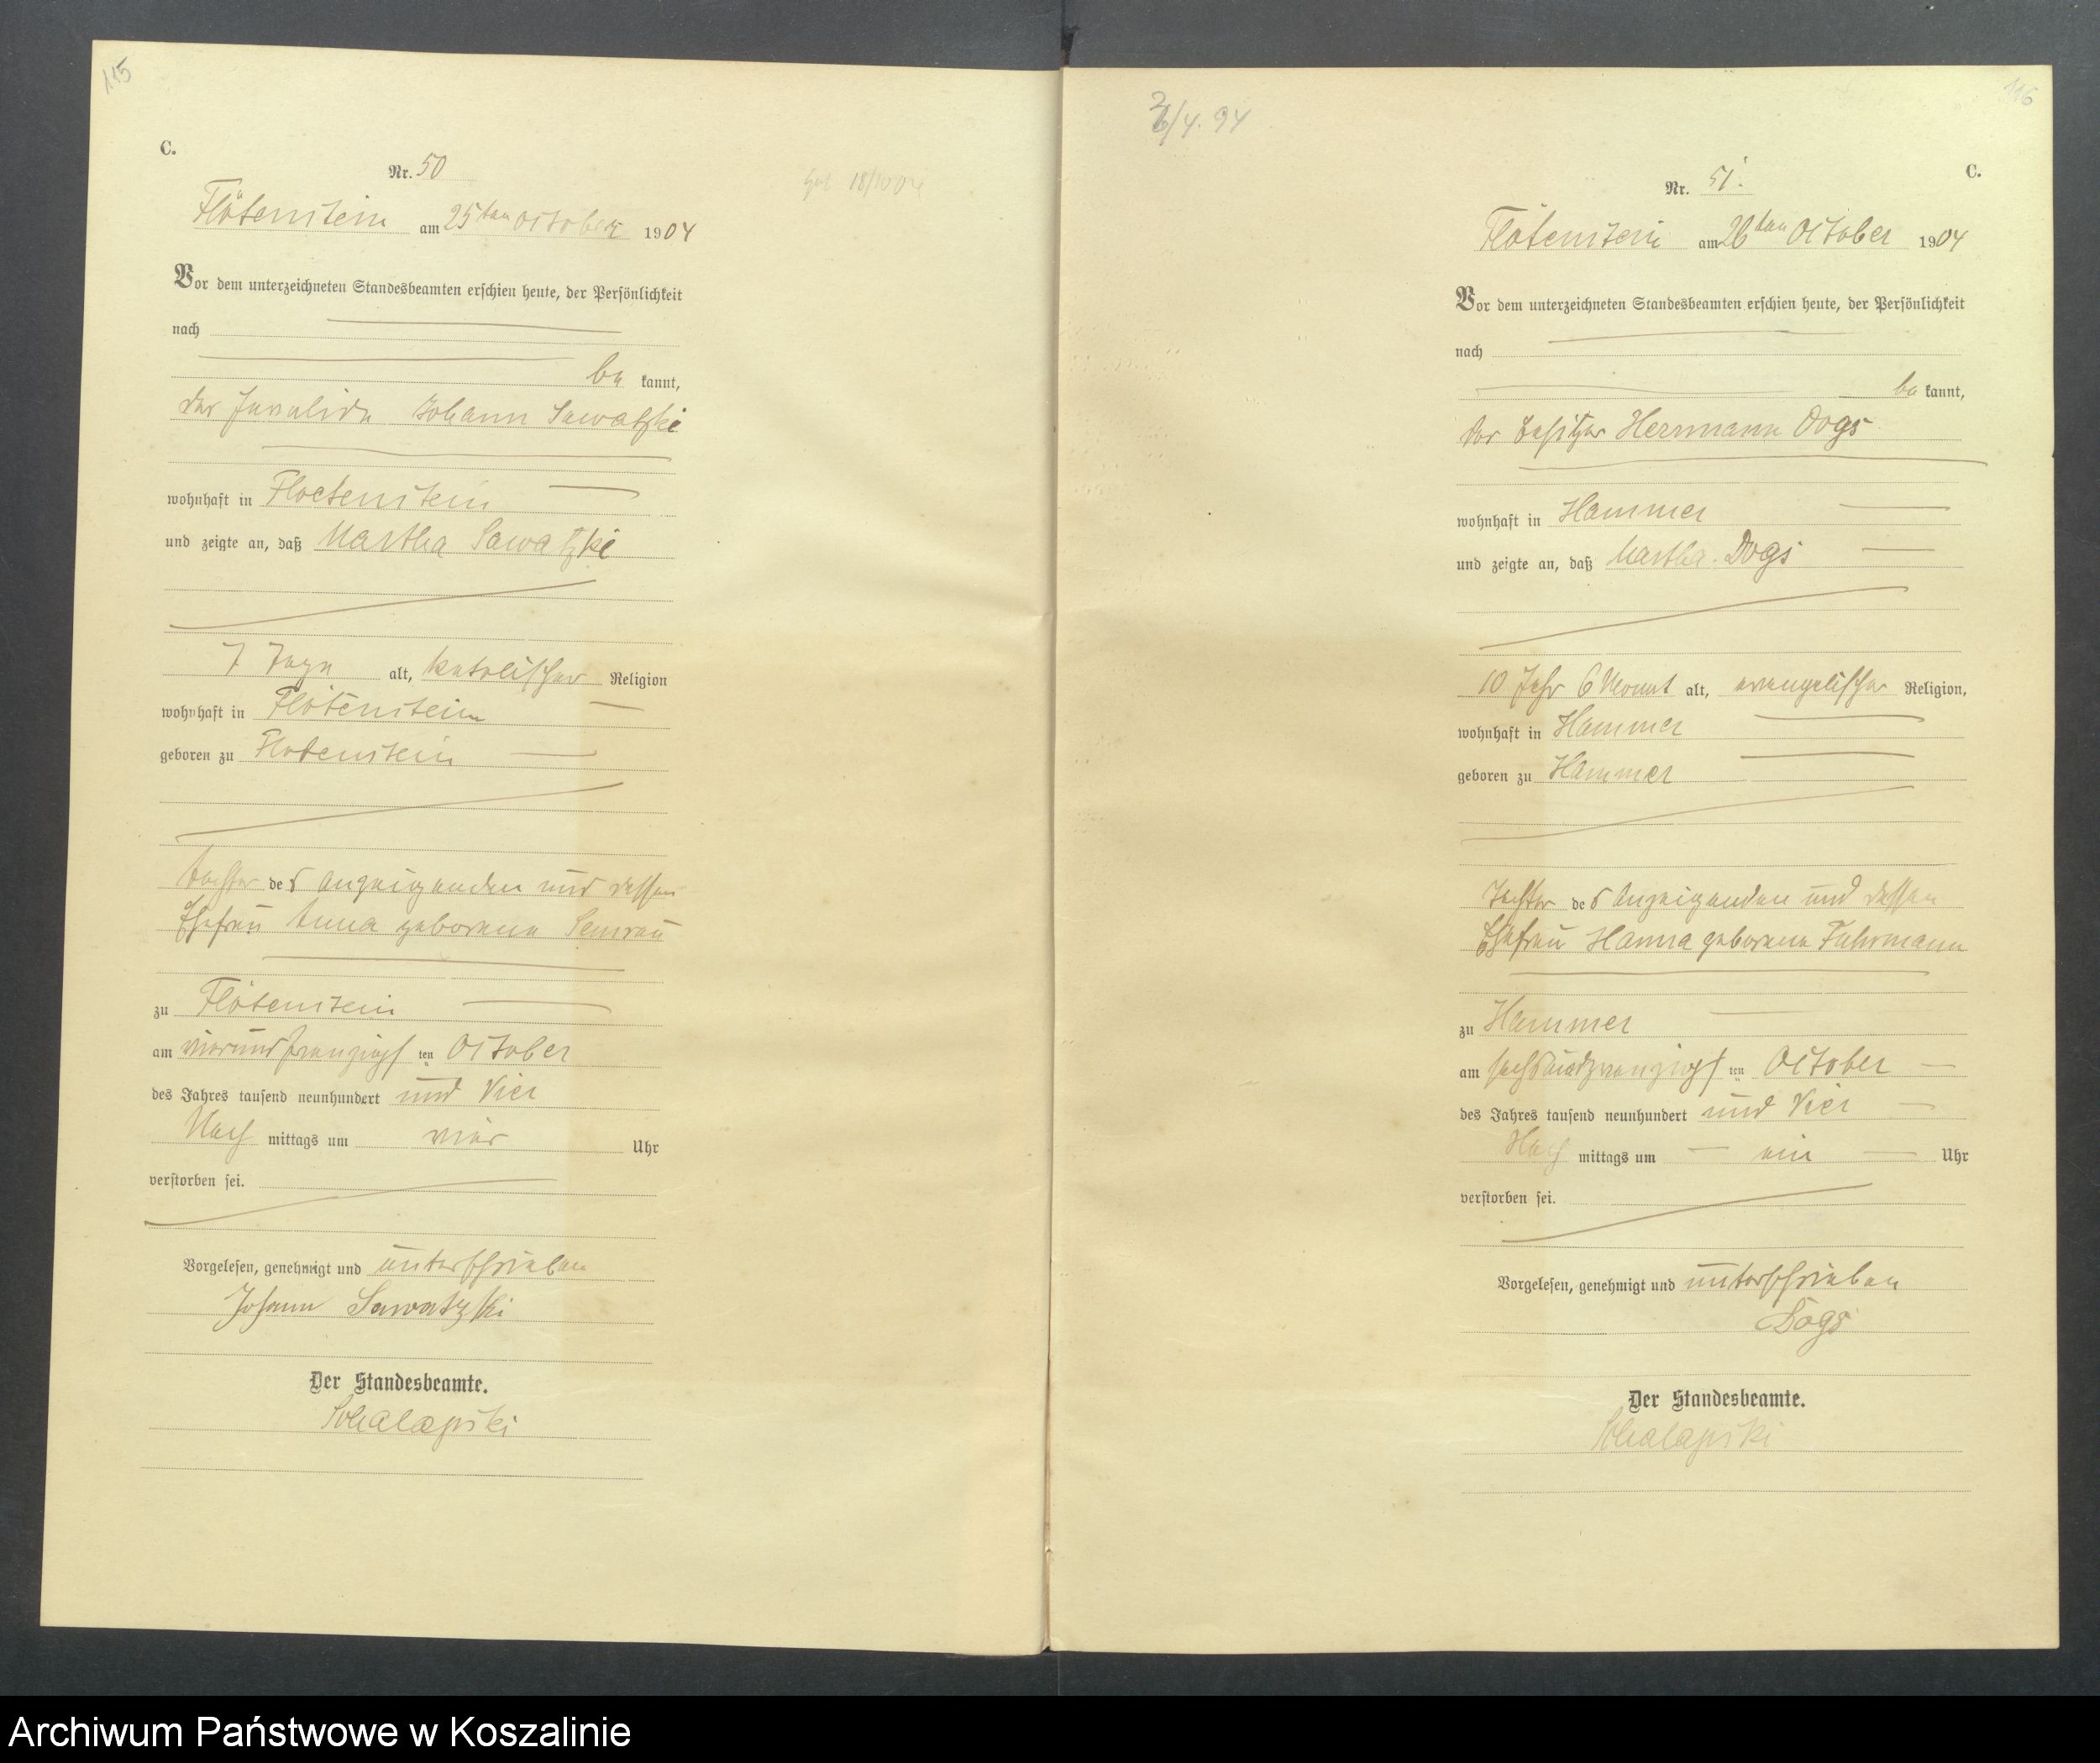 115
C.
Nr. 50
Flötenstein am 25ten October 1904
Vor dem unterzeichneten Standesbeamten erschien heute, der Persönlichkeit
nach
be kannt,
der Invalide Johann Sawatzki
wohnhaft in Floetenstein
und zeigte an, daß Martha Sawatzki
7 Tage alt, katolischer Religion
wohnhaft in Flötenstein
geboren zu Flotenstein
Tochter des Anzeigenden und dessen
Ehefrau Anna geborene Semrau
zu Flötenstein
am vierundzwanzigsten October
des Jahres tausend neunhundert und Vier
Nach mittags um vier Uhr
verstorben sei.
Vorgelesen, genehmigt und unterschrieben
Johann Sawatzki
Der Standesbeamte.
18/10 04
116
/4. 94
C.
Nr. 51.
Flötenstein am 26ten October 1904
Vor dem unterzeichneten Standesbeamten erschien heute, der Persönlichkeit
nach
be kannt,
der Besitzer Herrmann Dogs
wohnhaft in Hammer
und zeigte an, daß Martha Dogs
10 Jahr 6 Monat alt, evangelischer Religion,
wohnhaft in Hammer
geboren zu Hammer
Tochter des Anzeigenden und dessen
Ehefrau Hanna geborene Fuhrmann
zu Hammer
am sechsundzwanzigsten October
des Jahres tausend neunhundert und Vier
Nach mittags um ein Uhr
verstorben sei.
Vorgelesen, genehmigt und unterschrieben
Dogs
Der Standesbeamte.
Archiwum Państwowe w Koszalinie